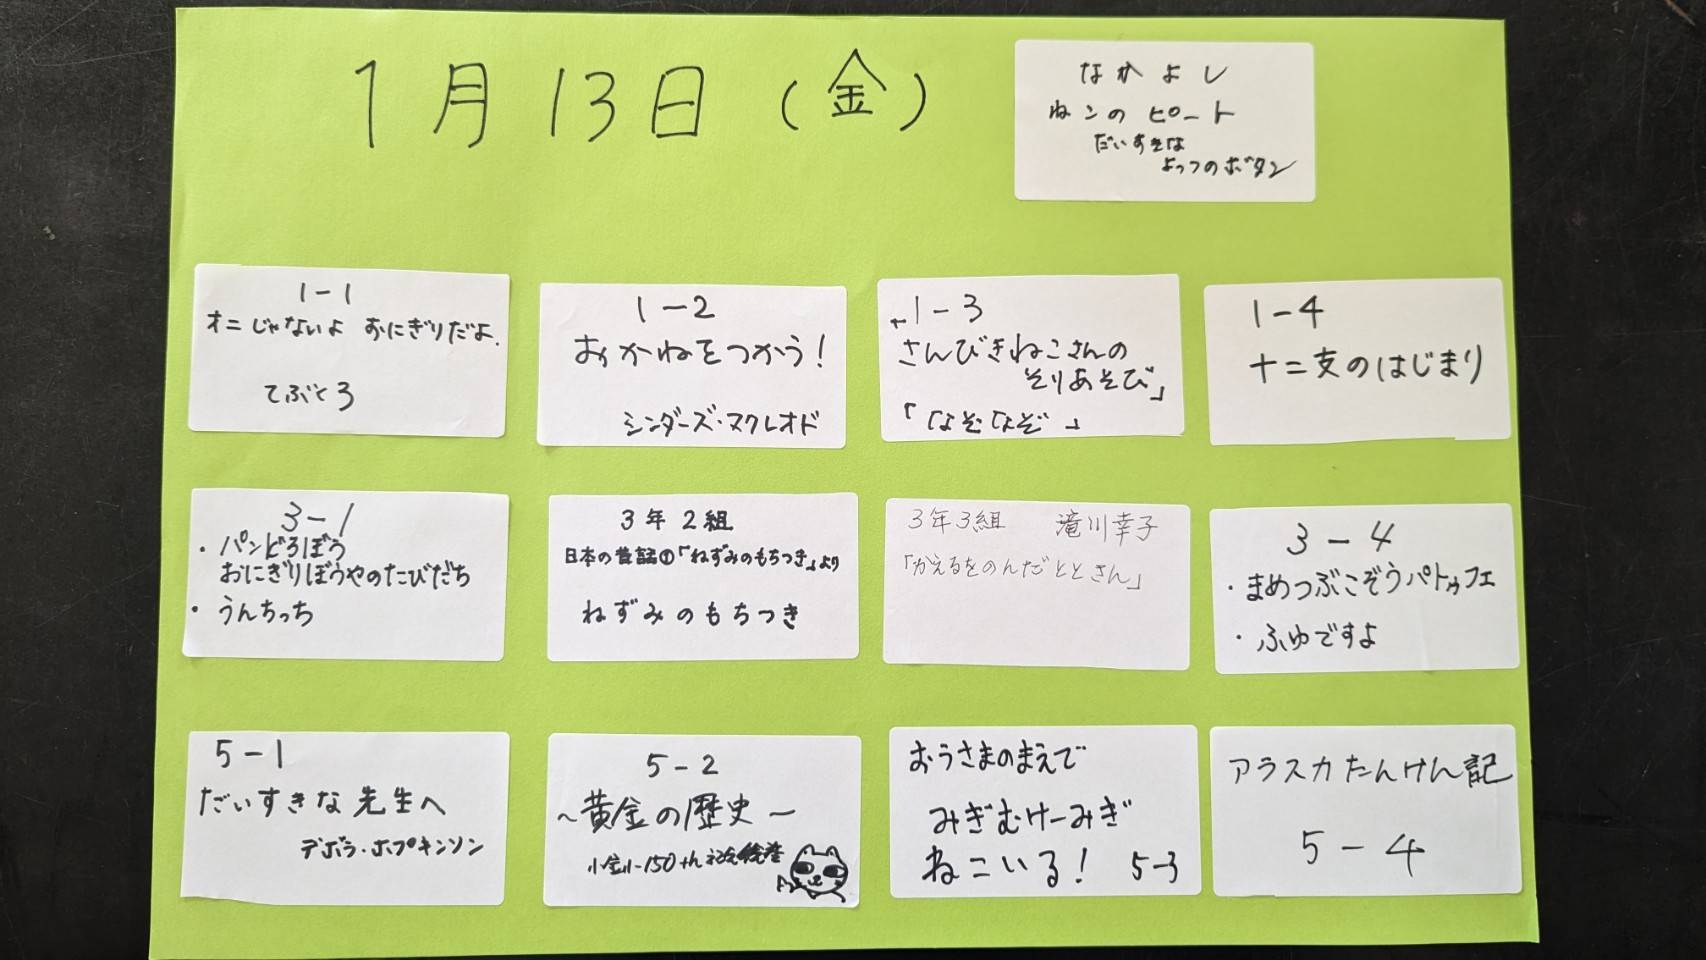 1月13日(金)
なかよし
ねコのピート
だいすきな
よっつのボタン
1-1
オニじゃないよ おにぎりだよ.
てぶくろ
1-2
おかねをつかう!
シンダーズ・マクレオド
1-3
さんびきねこさんの
そりあそび」
「なぞなぞ」
1-4
十二支のはじまり
3-1
・パンどろぼう
おにぎりぼうやのたびだち
・うんちっち
3年2組
日本の昔話①「ねずみのもちつき」より
ねずみのもちつき
3年3組 滝川幸子
「かえるをのんだととさん」
3-4
・まめつぶこぞうパトゥフェ
・ふゆですよ
5-1
だいすきな先生へ
デボラ・ホプキンソン
5-2
~黄金の歴史~
小金小150th
おうさまのまえで
みぎむけーみぎ
ねこいる! 5-3
アラスカたんけん記
5-4